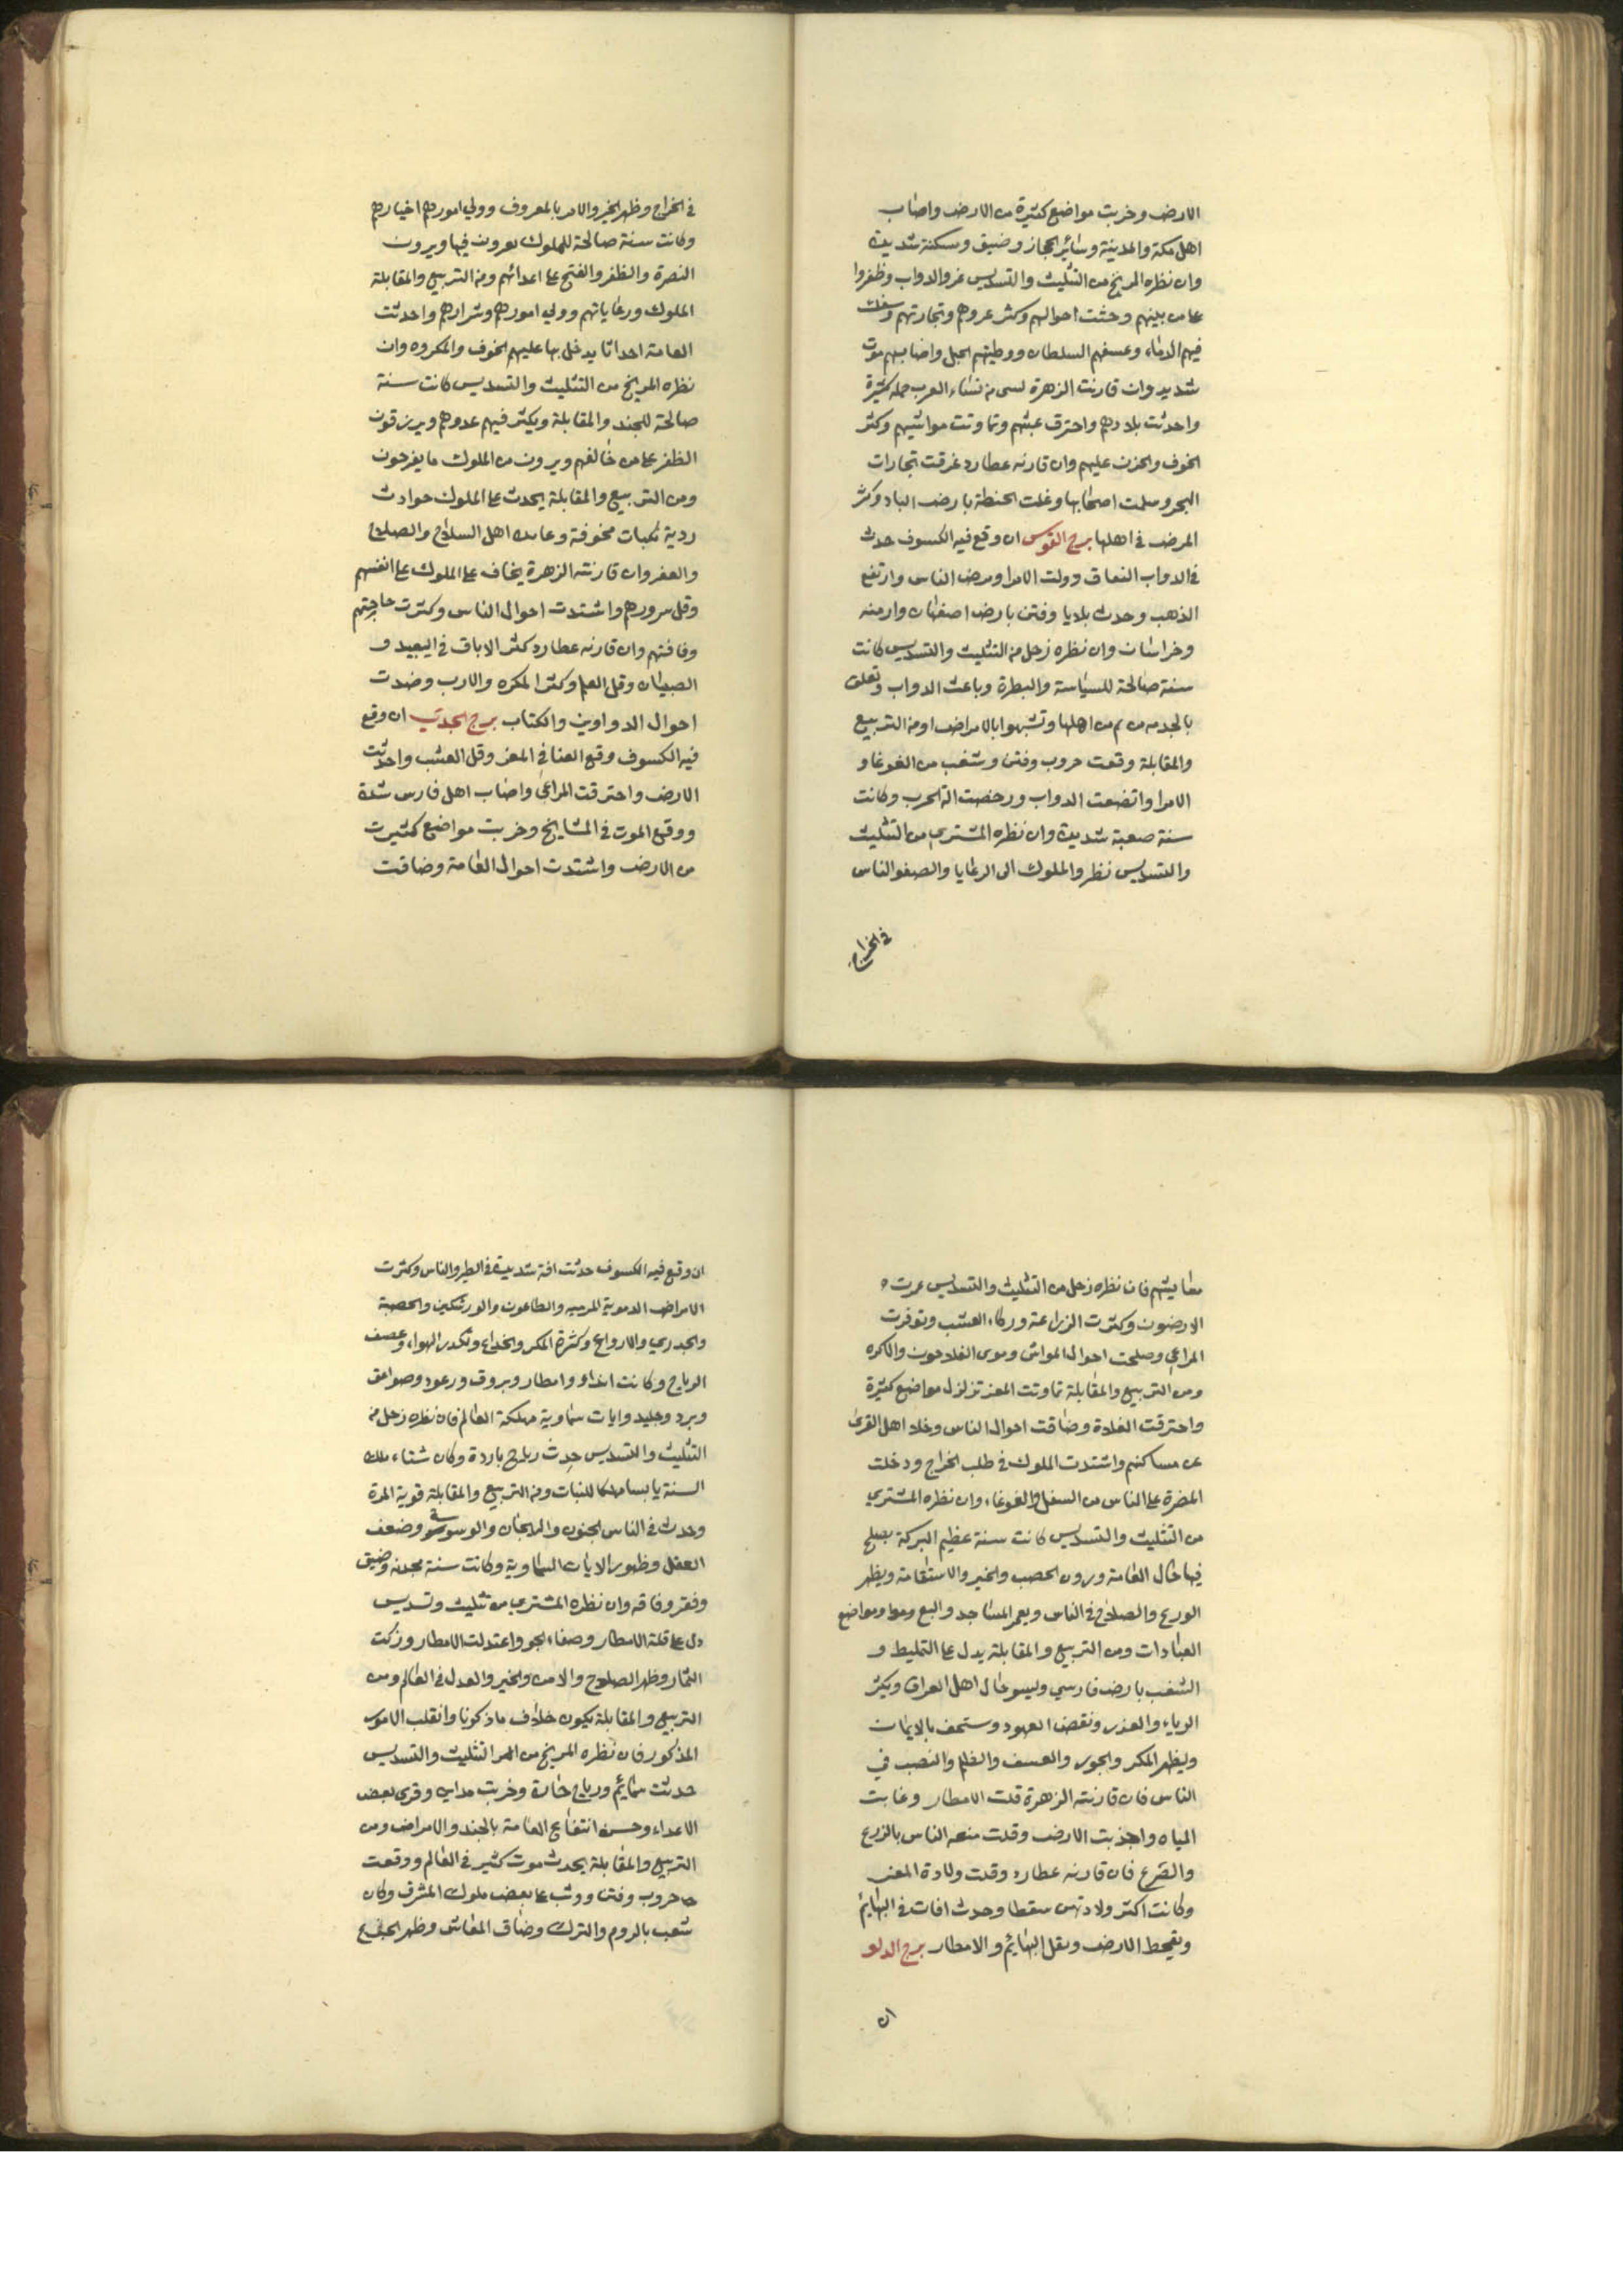 الارض وخربت مواضع كثيرة من الارض واصاب
اهل مكة والمدينة وسائر الحجاز وضيق ومسكنة شديدة
وان نظره المريخ من التثليث والتسديس غر والدواب وظفروا
على من بينهم وحثت احوالهم وكثر عروهم وتجارتهم وسفك
فيهم الدماء وعسفهم السلطان ووطيتهم الخيل واصابهم موت
شديد وان قارنت الزهرة لسى من نساء العرب جملة كثيرة
واحدثت بلادهم واحترق عبثهم وتماوتت مواشيهم وكثر
الخوف والحزن عليهم وان قارنه عطارد غرقت تجارات
البحر وسلمت اصحابها وغلت الحنطة بارض الباد وكثر
المرض في اهلها برج القوس ان وقع فيه الكسوف حدث
في الدواب النعاق وولت الامرا ومرض الناس وارتفع
الذهب وحدث بلايا وفتن بارض اصفهان وارمنه
وخراسان وان نظره زحل من التثليث والتسديس كانت
سنة صالحة للسياسة والبطرة وباعت الدواب وتعلق
بالجدمه من اهلها وتشبهوا بالامراض ومن التربيع
والمقابلة وقعت حروب وفتن وشغب من الغوغا و
الامرا واتضعت الدواب ورخصت الة الحرب وكانت
سنة صعبة شديدة وان نظره المشتري من التثليث
والتسديس نظر والملوك الى الرعايا والصفو الناس
في الخراج
في الخراج وظهر الخير والامر بالمعروف وولي امورهم اخيارهم
وكانت سنة صالحة للملوك يعرون فيها ويرون
النصرة والظفر والفتح على اعدائهم ومن التربيع والمقابلة
الملوك ورعاياتهم وولي امورهم وشرارهم واحدثت
العامة احداثا يدخل بها عليهم الخوف والمكروه وان
نظره المريخ من التثليث والتسديس كانت سنة
صالحة للجند والمقابلة ويكثر فيهم عدوهم ويرزقون
الظفر على من خالفهم ويرون من الملوك ما يفرحون
ومن التربيع والمقابلة يحدث على الملوك حوادث
ردية نكبات مخوفة وعامه اهل السلاح والصلاح
والعفر وان قارنته الزهرة يخاف على الملوك على انفسهم
وقل سرورهم واشتدت احوال الناس وكثرت حاجتهم
وفاقتهم وان قارنه عطارد كثر الاباق في العبيد و
الصبيان وقل العلم وكثر المكره والارب وضدت
احوال الدواوين والكتاب برج الجدي ان وقع
فيه الكسوف وقع الفنا في المعز وقل العشب واحدثت
الارض واحترقت المراعي واصاب اهل فارس شدة
ووقع الموت في المشايخ وخربت مواضع كثيرت
من الارض واشتدت احوال العامة وضاقت
معايشهم فان نظره زحل من التثليث والتسديس عمرت
الارضون وكثرت الزراعة وزكاء العشب وتوفرت
المراعي وصلحت احوال المواشي وموى الفلاحون والاكره
ومن التربيع والمقابلة تماوتت المعز تزلزل مواضع كثيرة
واحترقت الغلادة وضاقت احوال الناس وخلا اهل القرى
عن مساكنهم واشتدت الملوك في طلب الخراج ودخلت
المضرة على الناس من السفل والغوغاء وان نظره المشتري
من التثليث والتسديس كانت سنة عظيم البركة يصلح
فيها حال العامة ويرون الخصب والخير والاستقامة ويظهر
الورع والصلاح في الناس ويعمر المساجد والبيع ومواضع
العبادات ومن التربيع والمقابلة يدل على التخليط و
الشغب بارض فارس وليسو حال اهل العراق ويكثر
الرياء والغدر ونقض العهود وستخف بالايمان
ويظهر المكر والجور والعسف والظلم والنصب في
الناس فان قارنته الزهرة قلت الامطار وغابت
المياه واجدبت الارض وقلت منعه الناس بالزرع
والضرع فان قارنه عطارد وقلت ولادة المعز
وكانت اكثر ولادتهن سقطا وحدث افات في البهايم
ويقحط الارض ويقل البهايم والامطار برج الدلو
ان
ان وقع فيه الكسوف حدثت افة شديدة في الطير والناس وكثرت
الامراض الدموية والطاعون والورشكين والحصبة
والجدري والارواع وكثرة المكر والخداع وتكدر الهواء وعصف
الرياح وكانت انداء وامطار وبروق ورعود وصواعق
وبرد وجليد وايات سماوية مهلكة العالم فان نظره زحل من
التثليث والتسديس حدث رياح باردة وكان شتاء تلك
السنة يابسا مهلكا للنبات ومن التربيع والمقابلة قوية المرة
وحدث في الناس الجنون والوسوسة وضعف
العقل وظهور الايات السماوية وكانت سنة مجدبه وضيق
وفقر وفاقه وان نظره المشتري من تثليث وتسديس
دل على قلة الامطار وصفاء الجو واعتدلت الامطار وزكت
الثمار وظهر الصلاح والامن والخير والعدل في العالم ومن
التربيع والمقابلة يكون خلاف ما ذكونا وانقلب الامور
المذكور فان نظره المريخ من التثليث والتسديس
حدثت سمائم ورياح حارة وخربت مداين وقرى بعض
الاعداء وحسن انتفاع العامة بالجند والامراض ومن
التربيع والمقابلة يحدث موت كثير في العالم ووقعت
حروب وفتن ووثب على بعض ملوك المشرق وكان
شعب بالروم والترك وضاق المعاش وظهر الجفيع